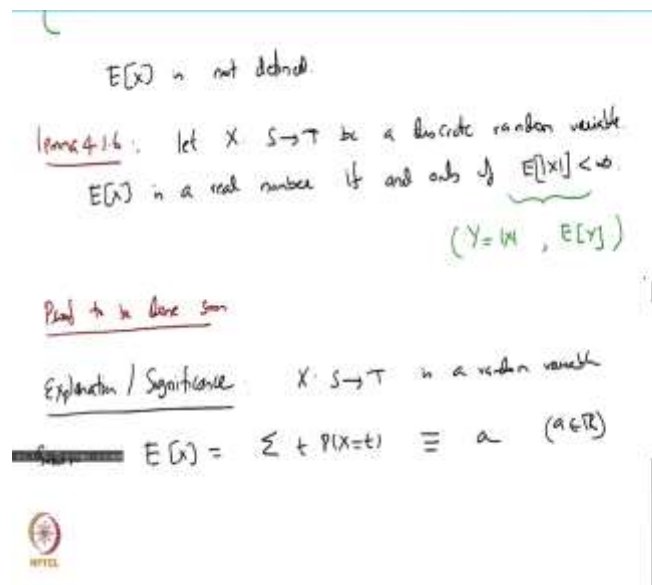 E[X] is not defined.
Lemma 4.1.6 : let X: S→T be a discrete random variable.
E[X] is a real number if and only if E[|X|] < ∞.
(Y=|X| , E[Y])
Proof to be done soon
Explanation / Significance X: S→T is a random variable
E[X] = Σ t P(X=t) ≡ a (a∈ℝ)
NPTEL